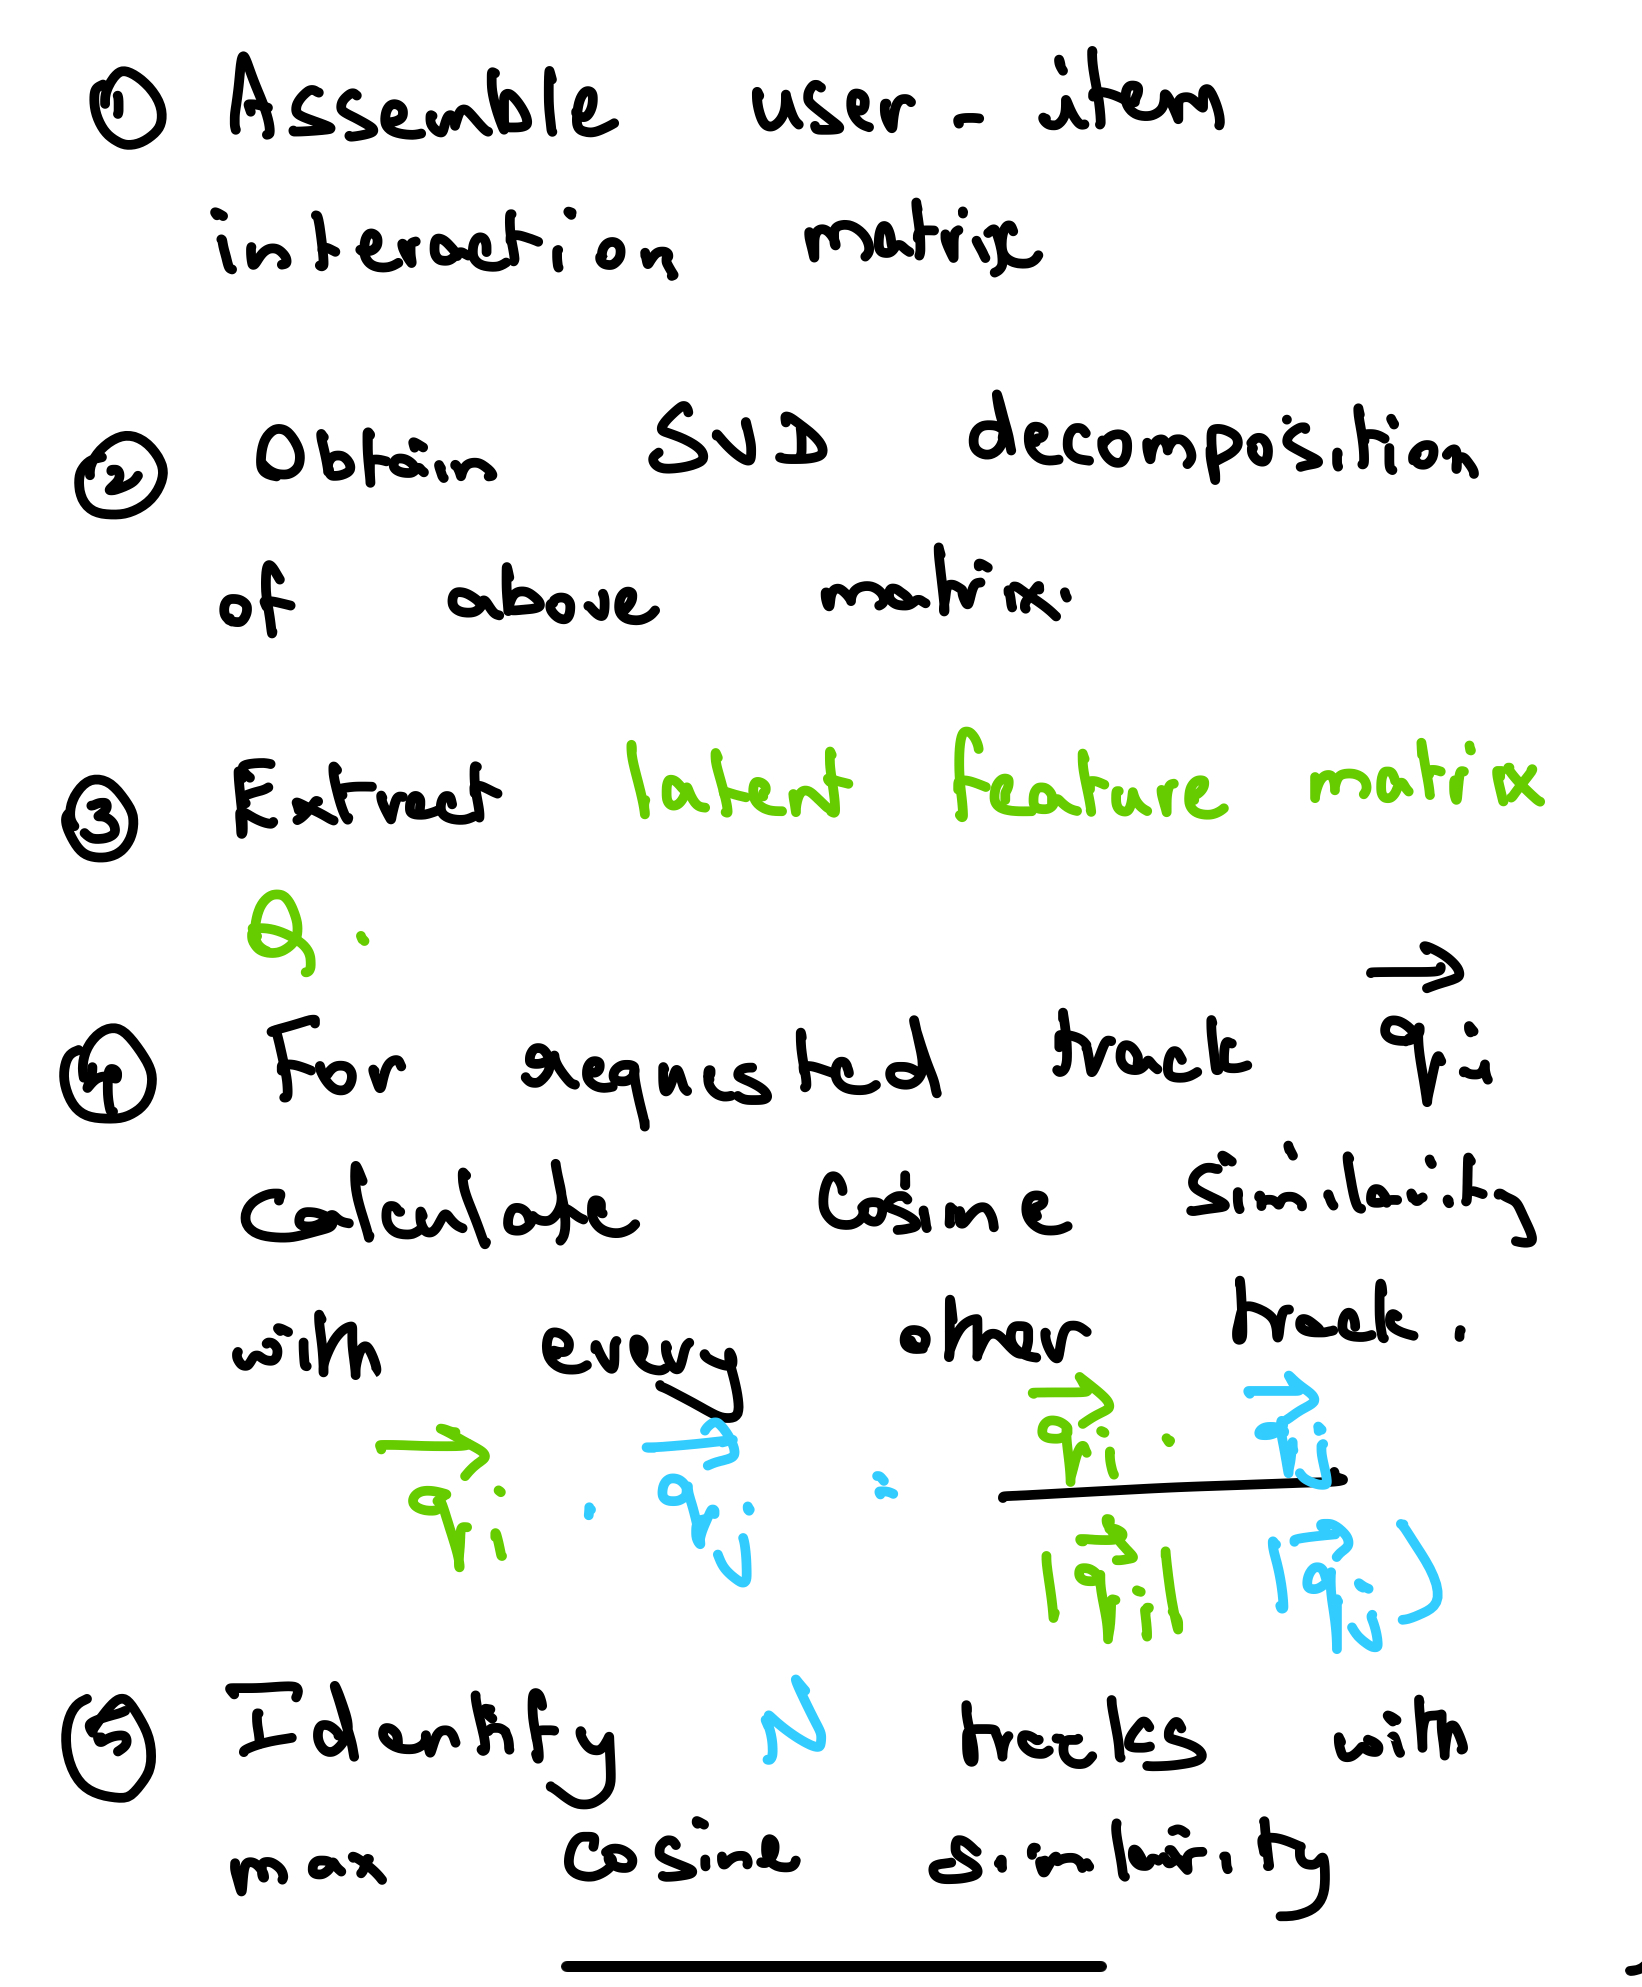 ① Assemble user - item
interaction matrix
② Obtain SVD decomposition
of above matrix.
③ Extract latent feature matrix
Q.
④ For requested track $\vec{q_i}$
calculate cosine similarity
with every other track.
$\vec{q_i} \cdot \vec{q_j} = \frac{\vec{q_i} \cdot \vec{q_j}}{|\vec{q_i}| |\vec{q_j}|}$
⑤ Identify N tracks with
max cosine similarity